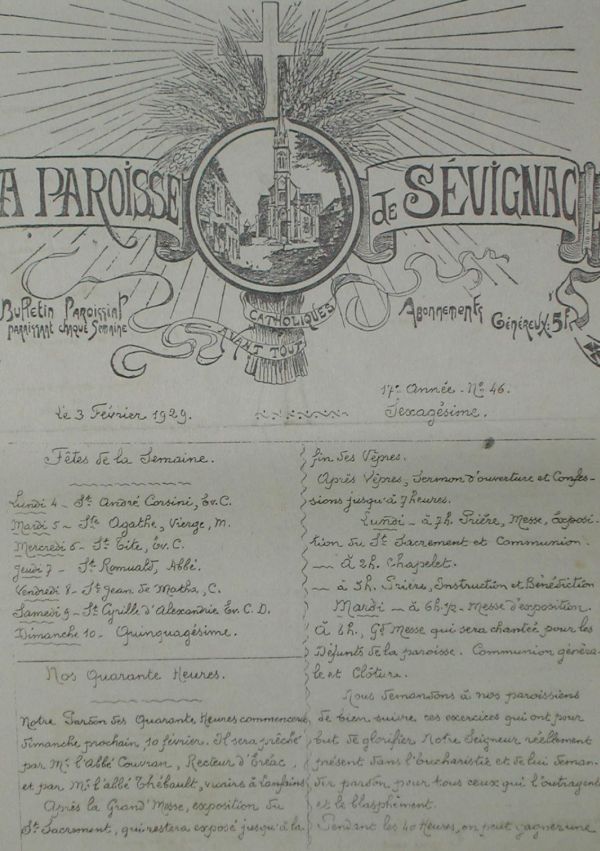 A PAROISSE de SÉVIGNAC
Bulletin Paroissial
paraissant chaque semaine
CATHOLIQUES
AVANT TOUT
Abonnements
Généreux: 5F
Le 3 Février 1929.
17e Année. No 46.
Sexagésime.
Fêtes de la Semaine.
Lundi 4 - St André Corsini, Ev. C.
Mardi 5 - Ste Agathe, Vierge, M.
Mercredi 6 - St Tite, Ev. C.
Jeudi 7 - St Romuald, Abbé.
Vendredi 8 - St Jean de Matha, C.
Samedi 9 - St Cyrille d'Alexandrie Ev. C. D.
Dimanche 10 - Quinquagésime.
Nos Quarante Heures.
Notre Pardon des Quarante Heures commencera
dimanche prochain, 10 février. Il sera prêché
par Mr. l'Abbé Couvran, Recteur d'Eréac,
et par Mr. l'abbé Thébault, vicaire à Lanfains
Après la Grand'Messe, exposition du
St Sacrement, qui restera exposé jusqu'à la
fin des Vêpres.
Après Vêpres, Sermon d'ouverture et Confes-
sions jusqu'à 7 heures.
Lundi - à 7h. Prière, Messe, Exposi-
tion du St Sacrement et Communion.
— À 2h. Chapelet.
— à 5h. Prière, Instruction et Bénédiction
Mardi — à 6h.½ - Messe d'exposition.
À 8h., Gd Messe qui sera chantée pour les
Défunts de la paroisse. Communion généra-
le et Clôture.
Nous demandons à nos paroissiens
de bien suivre ces exercices qui ont pour
but de glorifier Notre Seigneur réellement
présent dans l'eucharistie et de lui deman-
der pardon pour tous ceux qui l'outragent
et le blasphèment.
Pendant les 40 Heures, on peut gagner une